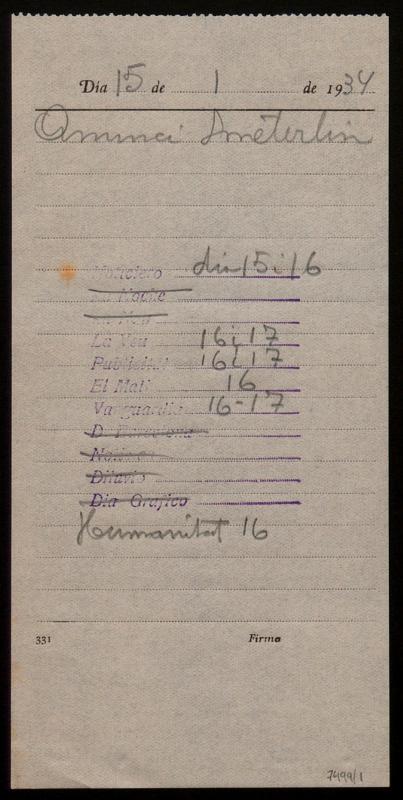 Día 15 de 1 de 1934
Anunci Ameterlin
Noticiero dia 15 i 16
La Noche
La Veu 16 i 17
Publicitat 16 i 17
El Mati 16
Vanguardia 16-17
D. Barcelona
Noticias
Diluvio
Dia Grafico
Humanitat 16
331 Firma
7499/1